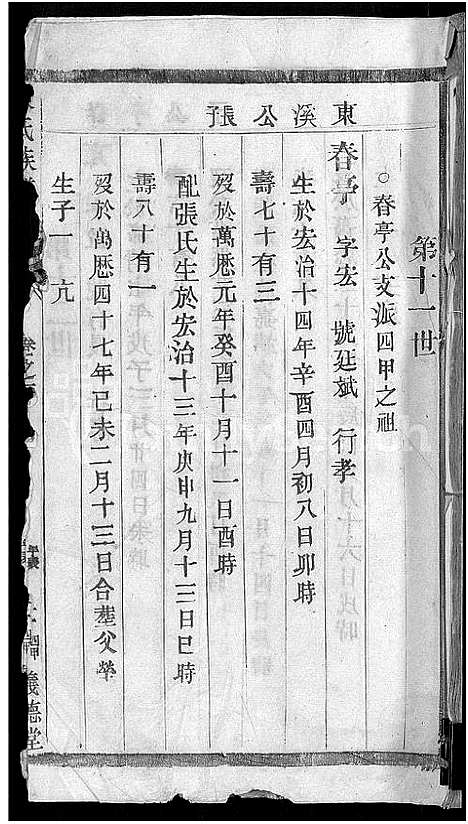 東溪公長子
第十一世
○春亭公支派四甲之祖
春亭 字宏十 號廷斌 行孝
生於宏治十四年辛酉四月初八日卯時
壽七十有三
歿於萬厯元年癸酉十月十一日酉時
配張氏生於宏治十三年庚申九月十三日巳時
壽八十有一
歿於萬厯四十七年己未二月十三日合塟父塋
生子一 亢
氏族
卷之
義德堂